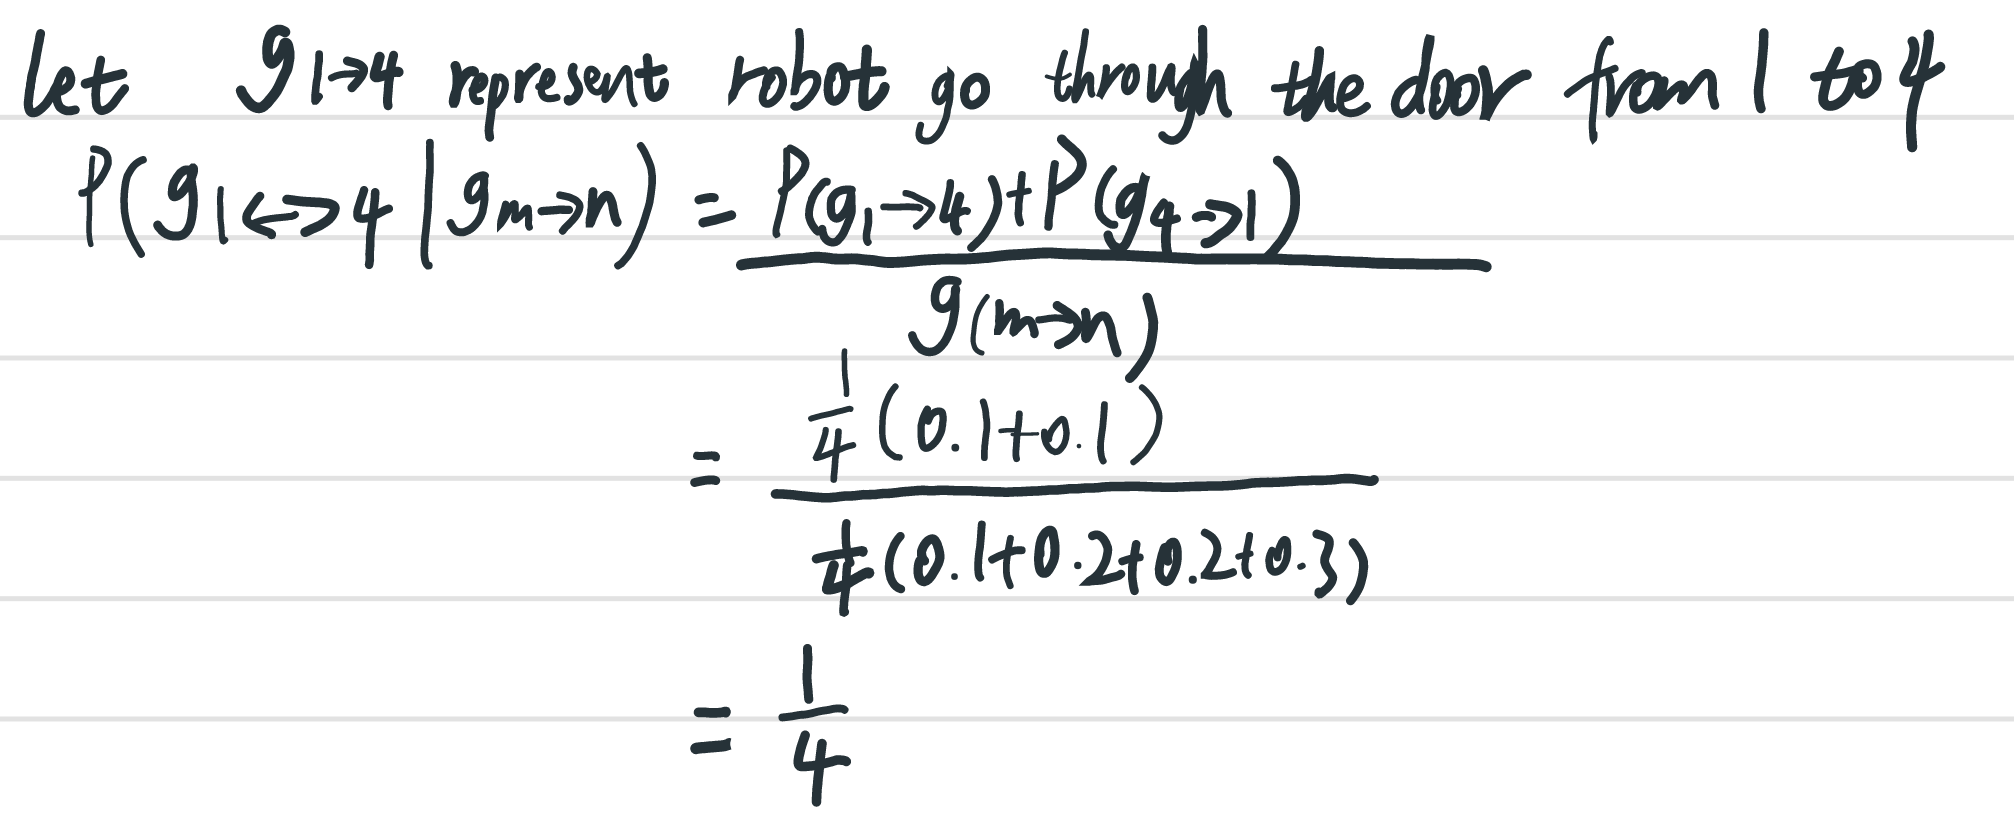 let g1→4 represent robot go through the door from 1 to 4
P(g1↔4 | gm→n) = P(g1→4)+P(g4→1)
g(m→n)
= 1/4 (0.1+0.1)
1/4 (0.1+0.2+0.2+0.3)
= 1/4